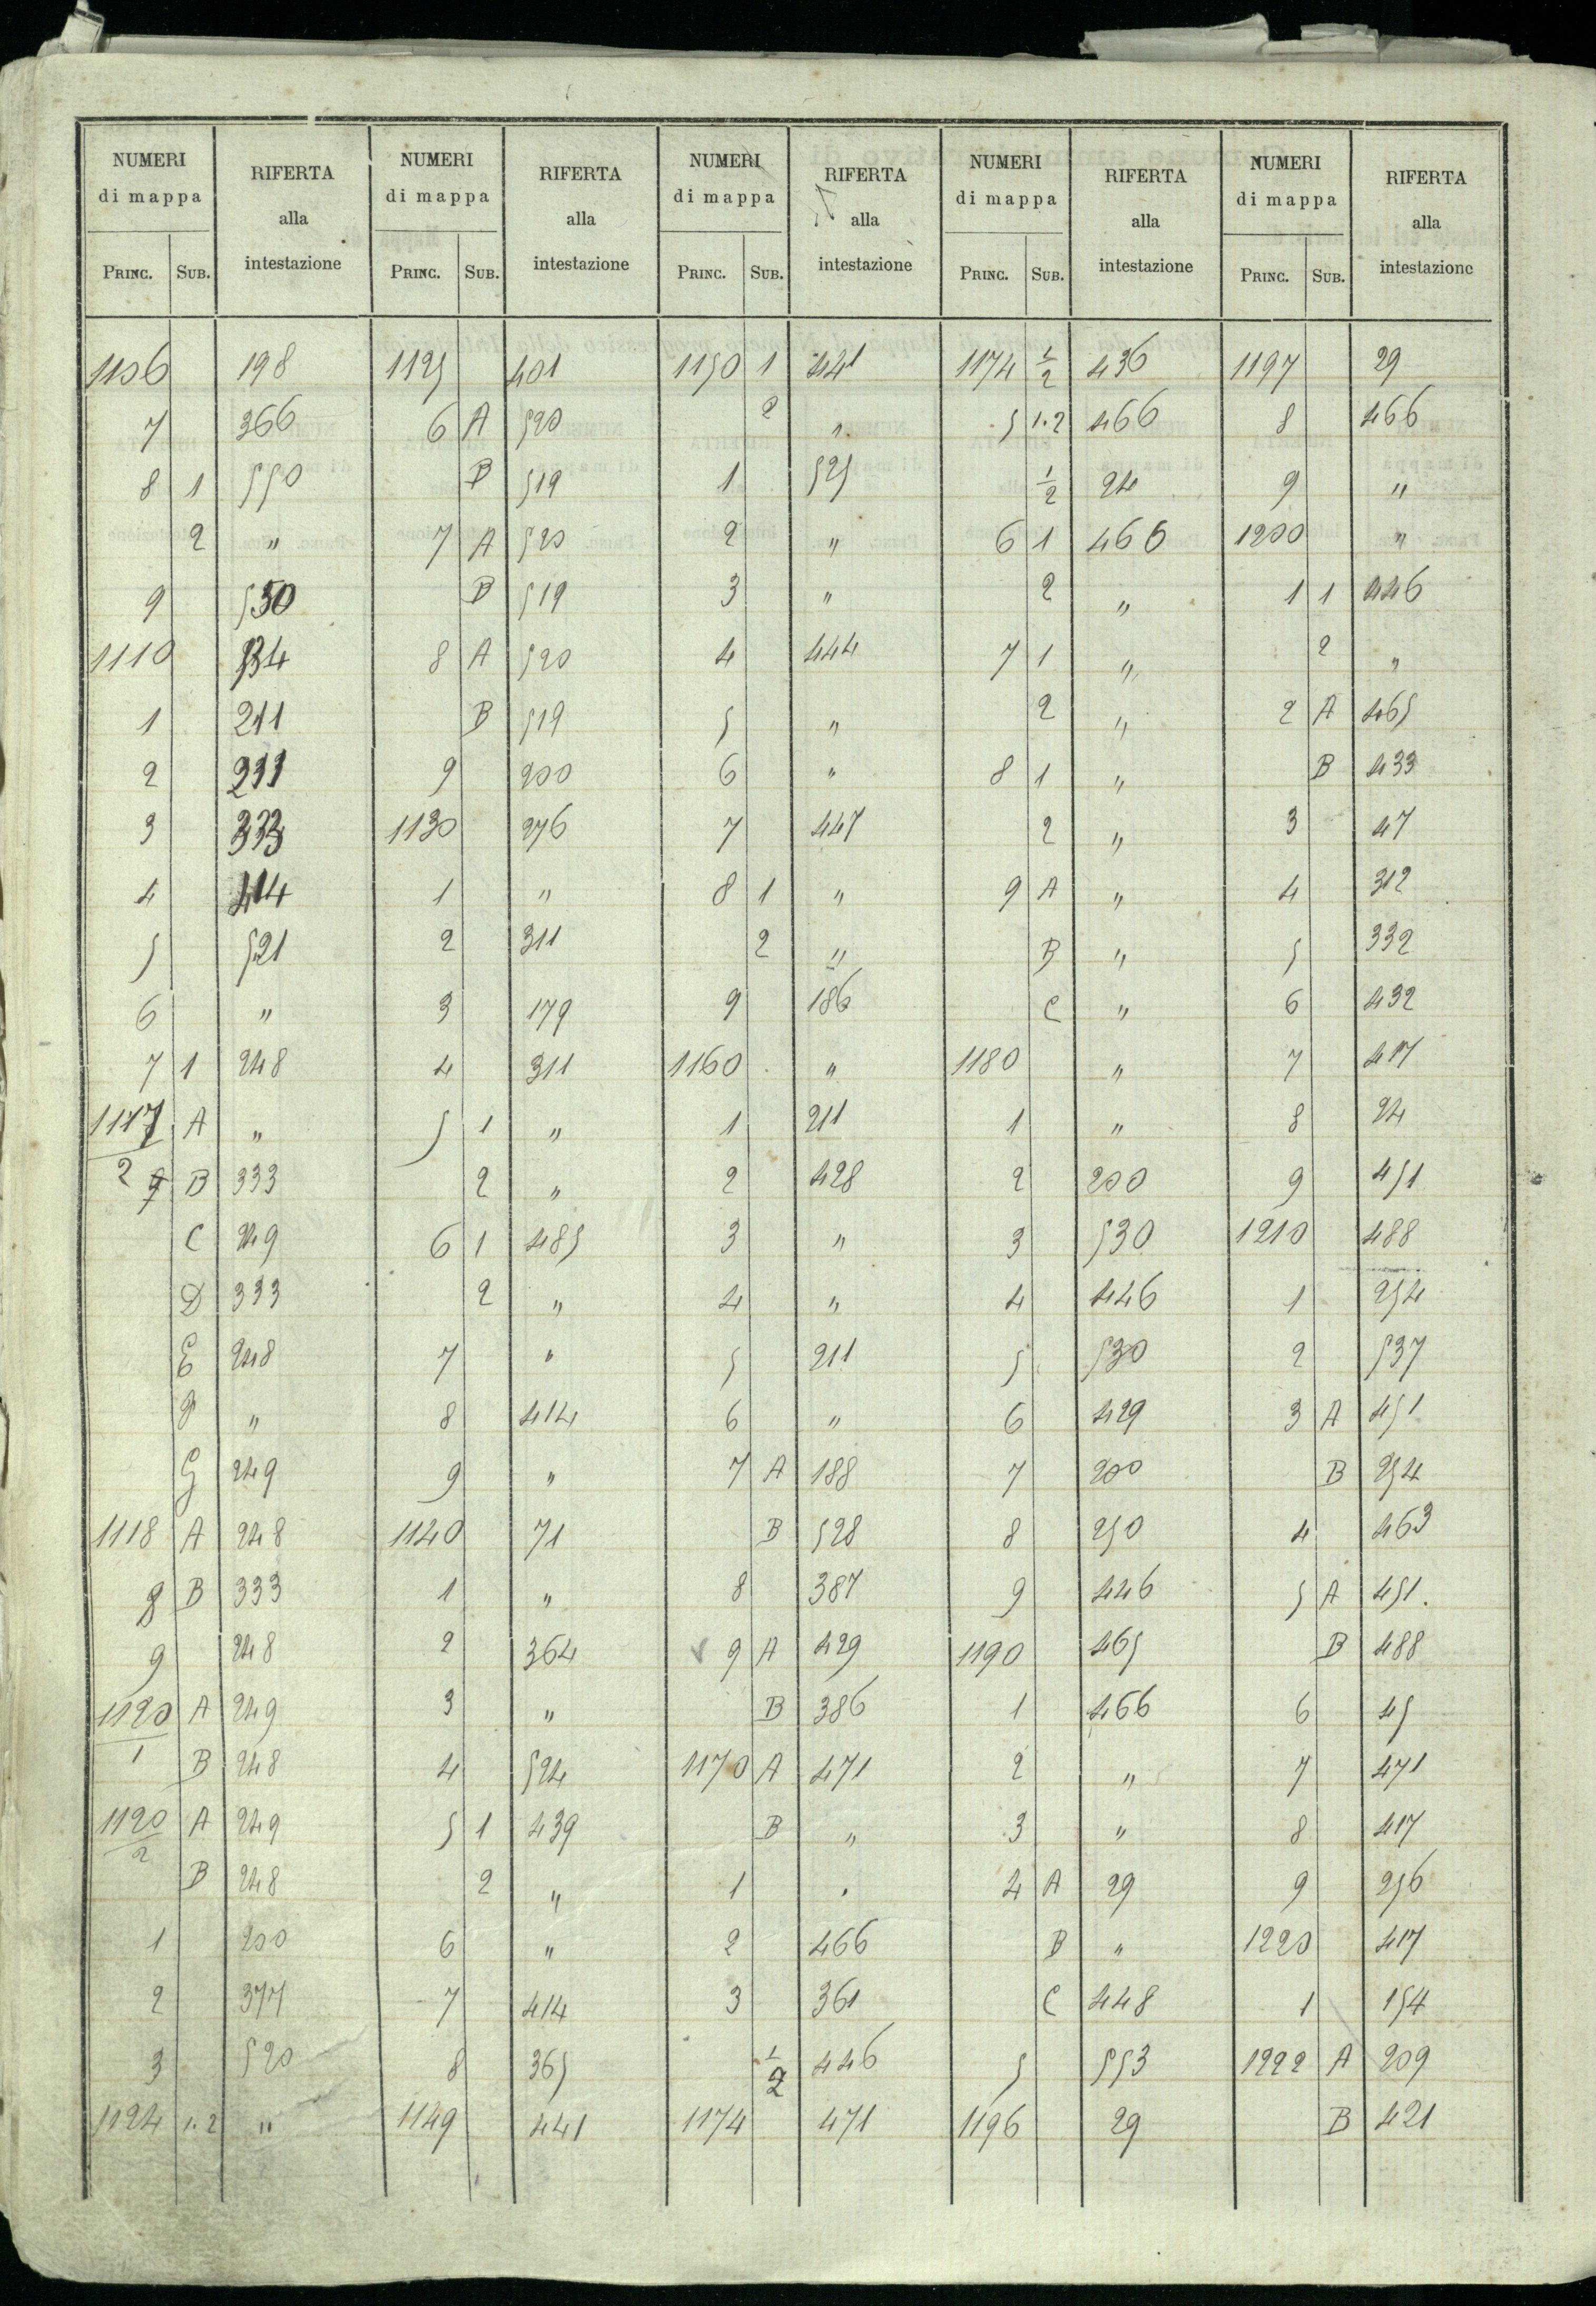 NUMERI di mappa RIFERTA alla intestazione NUMERI di mappa RIFERTA alla intestazione NUMERI di mappa RIFERTA alla intestazione NUMERI di mappa RIFERTA alla intestazione NUMERI di mappa RIFERTA alla intestazione
PRINC. SUB. PRINC. SUB. PRINC. SUB. PRINC. SUB. PRINC. SUB.
1106 198 1125 401 1150 1 441 1174 1/2 436 1197 29
7 366 6 A 520 2 " 5 1.2 466 8 466
8 1 550 B 519 1 525 1/2 24 9 "
2 " 7 A 520 2 " 6 1 466 1200 "
9 550 B 519 3 " 2 " 1 1 446
1110 534 8 A 520 4 444 7 1 " 2 "
1 211 B 519 5 " 2 " 2 A 465
2 233 9 200 6 " 8 1 " B 433
3 333 1130 276 7 447 2 " 3 47
4 414 1 " 8 1 " 9 A " 4 312
5 521 2 311 2 " B " 5 332
6 " 3 179 9 186 C " 6 432
7 1 248 4 311 1160 " 1180 " 7 417
1117 A " 5 1 " 1 211 1 " 8 24
2 7 B 333 2 " 2 428 2 200 9 451
C 249 6 1 485 3 " 3 530 1210 488
D 333 2 " 4 " 4 446 1 254
E 248 7 " 5 211 5 530 2 537
F " 8 414 6 " 6 429 3 A 451
G 249 9 " 7 A 188 7 200 B 254
1118 A 248 1140 71 B 528 8 250 4 463
8 B 333 1 " 8 387 9 446 5 A 451.
9 248 2 364 9 A 429 1190 465 B 488
1120 A 249 3 " B 386 1 466 6 45
1 B 248 4 524 1170 A 471 2 " 7 471
1120/2 A 249 5 1 439 B " 3 " 8 417
B 248 2 " 1 " 4 A 29 9 256
1 200 6 " 2 466 B " 1220 417
2 377 7 414 3 361 C 448 1 154
3 520 8 365 1/2 446 5 553 1222 A 209
1124 1.2 " 1149 441 1174 471 1196 29 B 421